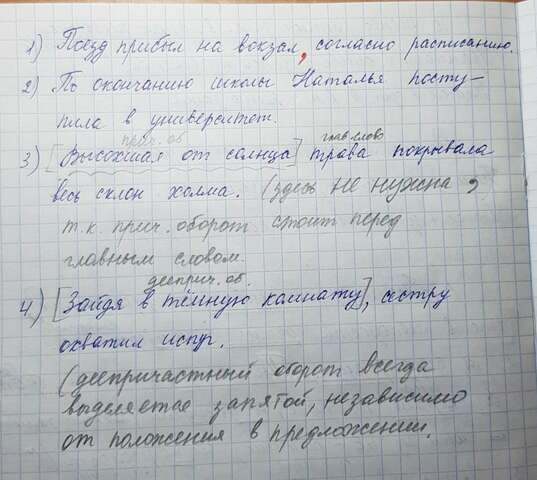 1) Поезд прибыл на вокзал, согласно расписанию.
2) По окончанию школы Наталья посту-
пила в университет.
прич. об. глав. слово
3) [Высохшая от солнца] трава покрывала
весь склон холма. (здесь не нужна ,
т.к. прич. оборот стоит перед
главным словом.
дееприч. об.
4) [Зайдя в тёмную комнату], сестру
охватил испуг.
(деепричастный оборот всегда
выделяется запятой, независимо
от положения в предложении.